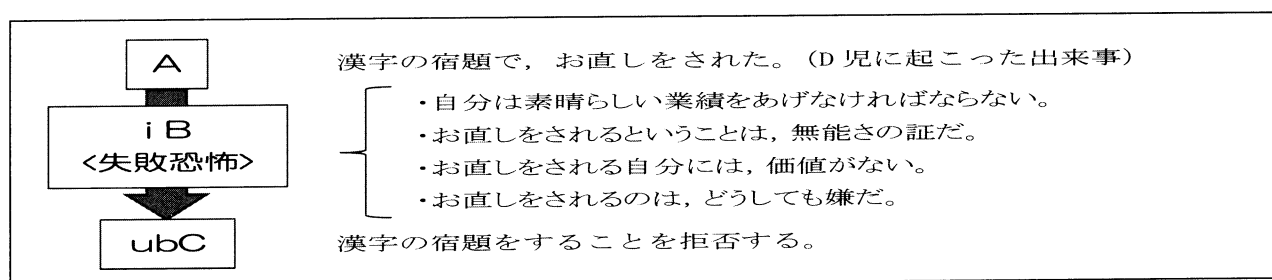 A
漢字の宿題で,お直しをされた。(D児に起こった出来事)
iB
<失敗恐怖>
・自分は素晴らしい業績をあげなければならない。
・お直しをされるということは,無能さの証だ。
・お直しをされる自分には,価値がない。
・お直しをされるのは,どうしても嫌だ。
ubC
漢字の宿題をすることを拒否する。